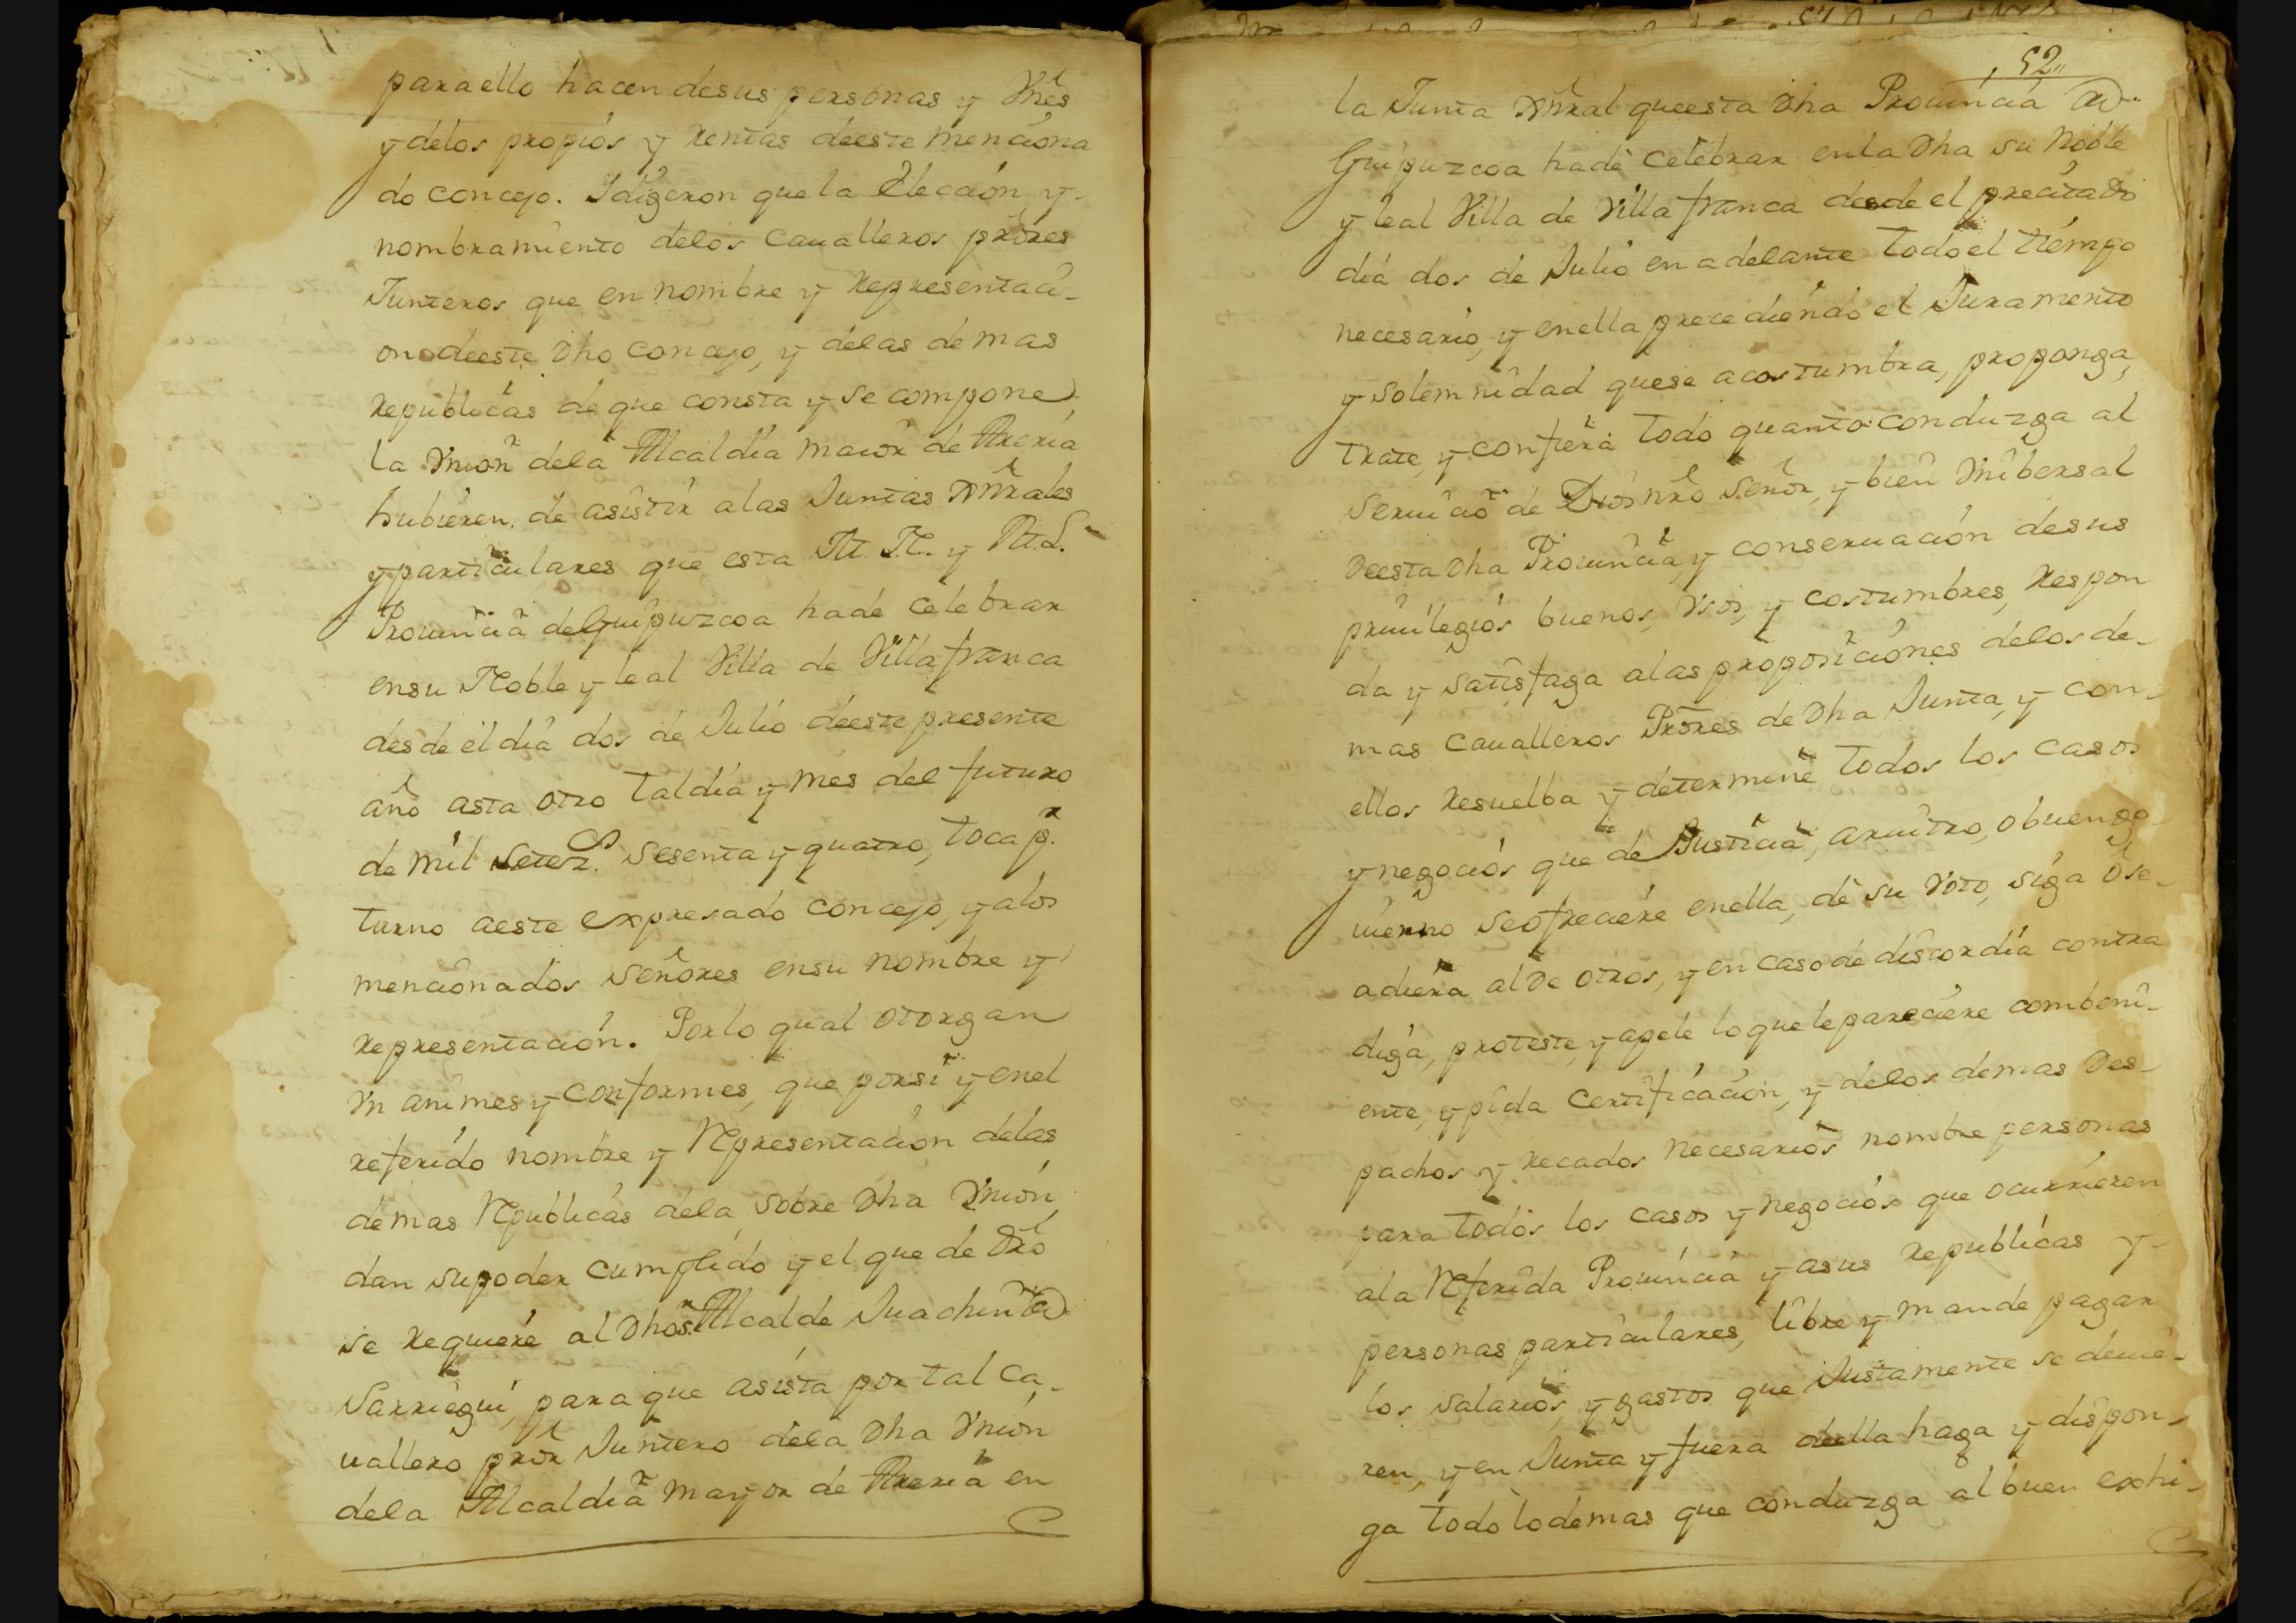 para ello hacen de sus personas y Vnes
y delos propios y Rentas de este menciona
do concejo. Y dixeron que la Eleccion, y
nombramiento delos Caualleros prõres
Junteros que en nombre y Representaci-
on de este dho concejo, y delas demas
Republicas de que consta y se compone
la Vnion dela Alcaldia maior de Areria
hubieren de asistir alas Juntas Grãles
y particulares que esta M. N. y M. L.
Prouincia de Guipuzcoa hade celebrar
en su Noble y leal Villa de Villafranca
desde el dia dos de Julio de este presente
año asta otro tal dia y mes del futuro
de mil setez.s sesenta y quatro, toca p.r
turno a este expresado concejo, y alos
mencionados Señores en su nombre y
Representacion. Por lo qual otorgan
Vnanimes y conformes, que por si y en el
referido nombre y Representacion delas
demas Republicas dela sobre dha Vnion,
dan su poder cumplido y el que de dró
se Requiere al dho S.r Alcalde Juachin de
Sarriegui, para que asista por tal Ca-
uallero prõr Juntero dela dha Vnion
dela Alcaldia mayor de Areria en
52
la Junta Grãl que esta dha Prouincia de
Guipuzcoa hade celebrar en la dha su Noble
y leal Villa de Villafranca desde el precitado
dia dos de Julio en adelante todo el tiempo
necesario, y en ella precediendo el Juramento
y solemnidad que se acostumbra, proponga,
trate, y confiera todo quanto conduzga al
seruicio de Dios nrõ Señor, y bien Vnibersal
de esta dha Prouincia, y conseruacion de sus
priuilegios buenos, Vsos, y costumbres, Respon
da y satisfaga alas proposiciones delos de-
mas Caualleros Prõres de dha Junta, y con
ellos Resuelba y determine todos los casos
y negocios que de Justicia, aruitro, o buen go
uierno se ofreciere en ella, dè su Voto, siga o se
adiera al de otros, y en caso de discordia contra
diga, proteste, y apele lo que le pareciere combeni-
ente, y pida Certificacion, y delos demas Des-
pachos y Recados necesarios nombre personas
para todos los casos y negocios que ocurrieren
ala Referida Prouincia y asus Republicas y
personas particulares, libre y mande pagar
los salarios, y gastos que Justamente se deuie-
ren, y en Junta y fuera de ella haga y dispon-
ga todo lo demas que conduzga al buen exhi-